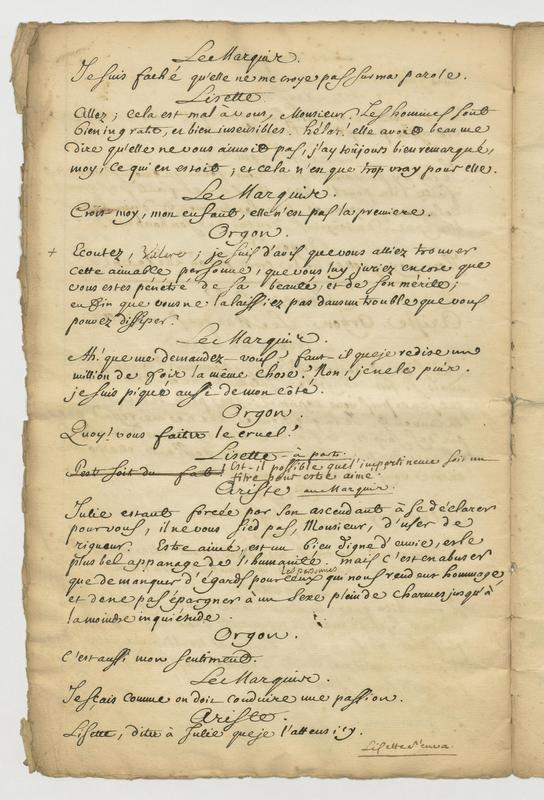 Le Marquis.
Je suis faché qu'elle ne me croye pas sur ma parole.
Lisette
Allez; cela est mal à vous, Monsieur. Les hommes sont
bien ingrats, et bien insensibles. hélas! elle avoit beau me
dire qu'elle ne vous aimoit pas, j'ay toujours bien remarqué,
moy, ce qui en estoit; et cela n'est que trop vray pour elle.
Le Marquis.
Crois-moy, mon enfant, elle n'est pas la premiere.
Orgon.
+ Ecoutez, Valere; je suis d'avis que vous alliez trouver
cette aimable personne, que vous luy juriez encore que
vous estes pénétré de sa beauté, et de son mérite;
enfin que vous ne la laissiez pas dans un trouble que vous
pouvez dissiper.
Le Marquis.
Ah! que me demandez-vous? faut-il que je redise un
million de fois la même chose? Non, je ne le puis.
je suis piqué aussi de mon côté.
Orgon.
Quoy! vous faites le cruel!
Lisette à part.
Pest soit du fat! Est-il possible que l'impertinence soit un
titre pour estre aimé.
Ariste au Marquis.
Julie estant forcée par son ascendant à se déclarer
pour vous, il ne vous sied pas, Monsieur, d'user de
rigueur. Estre aimé, est un bien digne d'envie, est le
plus bel appanage de l'humanité, mais c'est en abuser
les personnes
que de manquer d'égards pour ceux qui nous rendent hommage,
et de ne pas épargner à un sexe plein de charmes jusqu'à
la moindre inquietude.
Orgon.
C'est aussi mon sentiment.
Le Marquis.
Je sçais comme on doit conduire une passion.
Ariste.
Lisette, dites à Julie que je l'attens icy.
Lisette s'en va.